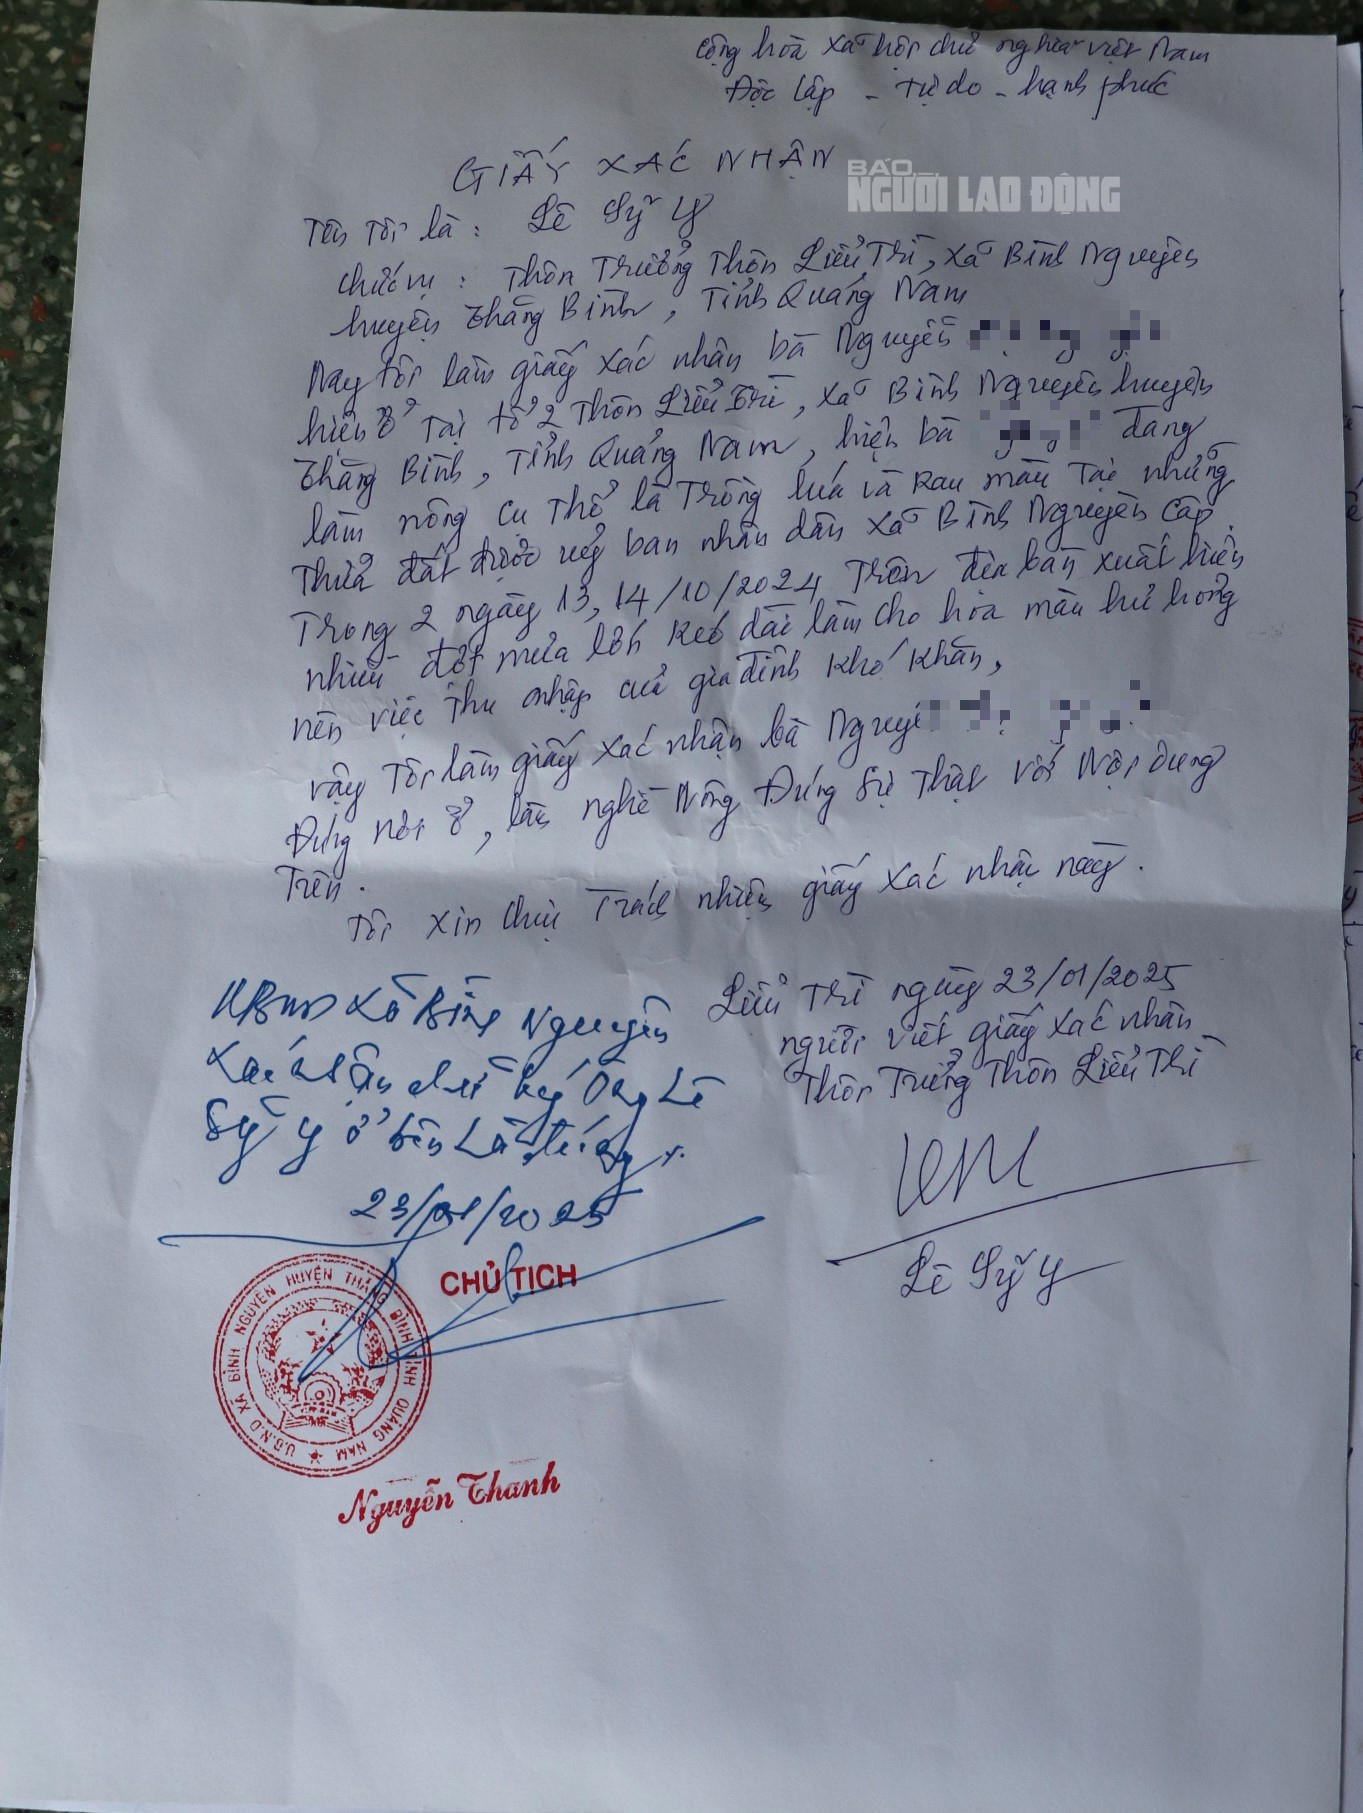 Cộng hòa xã hội chủ nghĩa việt Nam
Độc lập - Tự do - hạnh phúc
GIẤY XÁC NHẬN
BÁO
NGƯỜI LAO ĐỘNG
Tên tôi là : Lê Sỹ Y
chức vụ : Thôn Trưởng Thôn Liễu Trì, xã Bình Nguyên
huyện Thăng Bình, Tỉnh Quảng Nam
Nay tôi làm giấy xác nhận bà Nguyễn
hiện ở tại tổ 2 Thôn Liễu Trì, xã Bình Nguyên huyện
Thăng Bình, Tỉnh Quảng Nam, hiện bà đang
làm nông cụ thể là Trồng lúa và rau màu Tại những
Thửa đất được uỷ ban nhân dân xã Bình Nguyên cấp.
Trong 2 ngày 13, 14/10/2024 Trên địa bàn xuất hiện
nhiều đợt mưa lớn kéo dài làm cho hoa màu hư hỏng
nên việc thu nhập của gia đình khó khăn,
vậy Tôi làm giấy xác nhận bà Nguyễ
Đúng nơi ở, làm nghề Nông Đúng Sự Thật với Nội dung
Trên.
Tôi xin chịu Trách nhiệm giấy xác nhận này.
UBND Xã Bình Nguyên
Xác nhận chữ ký Ông Lê
Sỹ Y ở bên là đúng.
23/01/2025
Liễu Trì ngày 23/01/2025
người viết giấy xác nhận
Thôn Trưởng Thôn Liễu Trì
Lê Sỹ Y
CHỦ TỊCH
U.B.N.D XÃ BÌNH NGUYÊN HUYỆN THĂNG BÌNH TỈNH QUẢNG NAM
Nguyễn Thanh